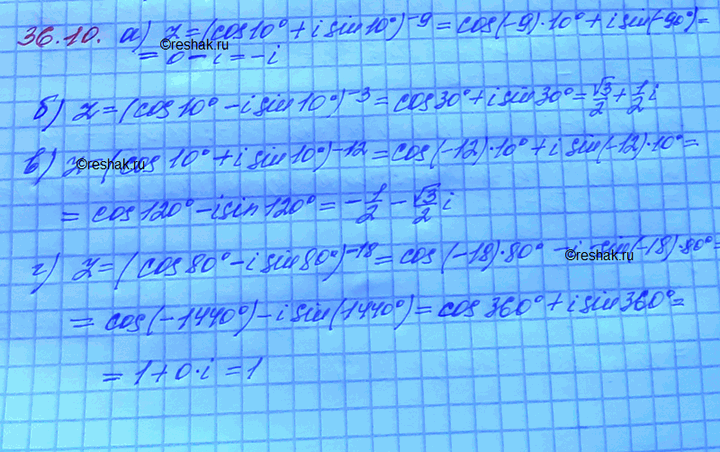 36.10. а) z=(cos10°+i sin10°)⁻⁹=cos(-9)·10°+i sin(-90°)=
=0-i=-i
reshak.ru
б) z=(cos10°-i sin10°)⁻³=cos30°+i sin30°=√3/2+1/2i
в) z=(cos10°+i sin10°)⁻¹²=cos(-12)·10°+i sin(-12)·10°=
reshak.ru
=cos120°-i sin120°=-1/2-√3/2 i
г) z=(cos80°-i sin80°)⁻¹⁸=cos(-18)·80°-i sin(-18)·80°=
reshak.ru
=cos(-1440°)-i sin(1440°)=cos360°+i sin360°=
=1+0·i=1